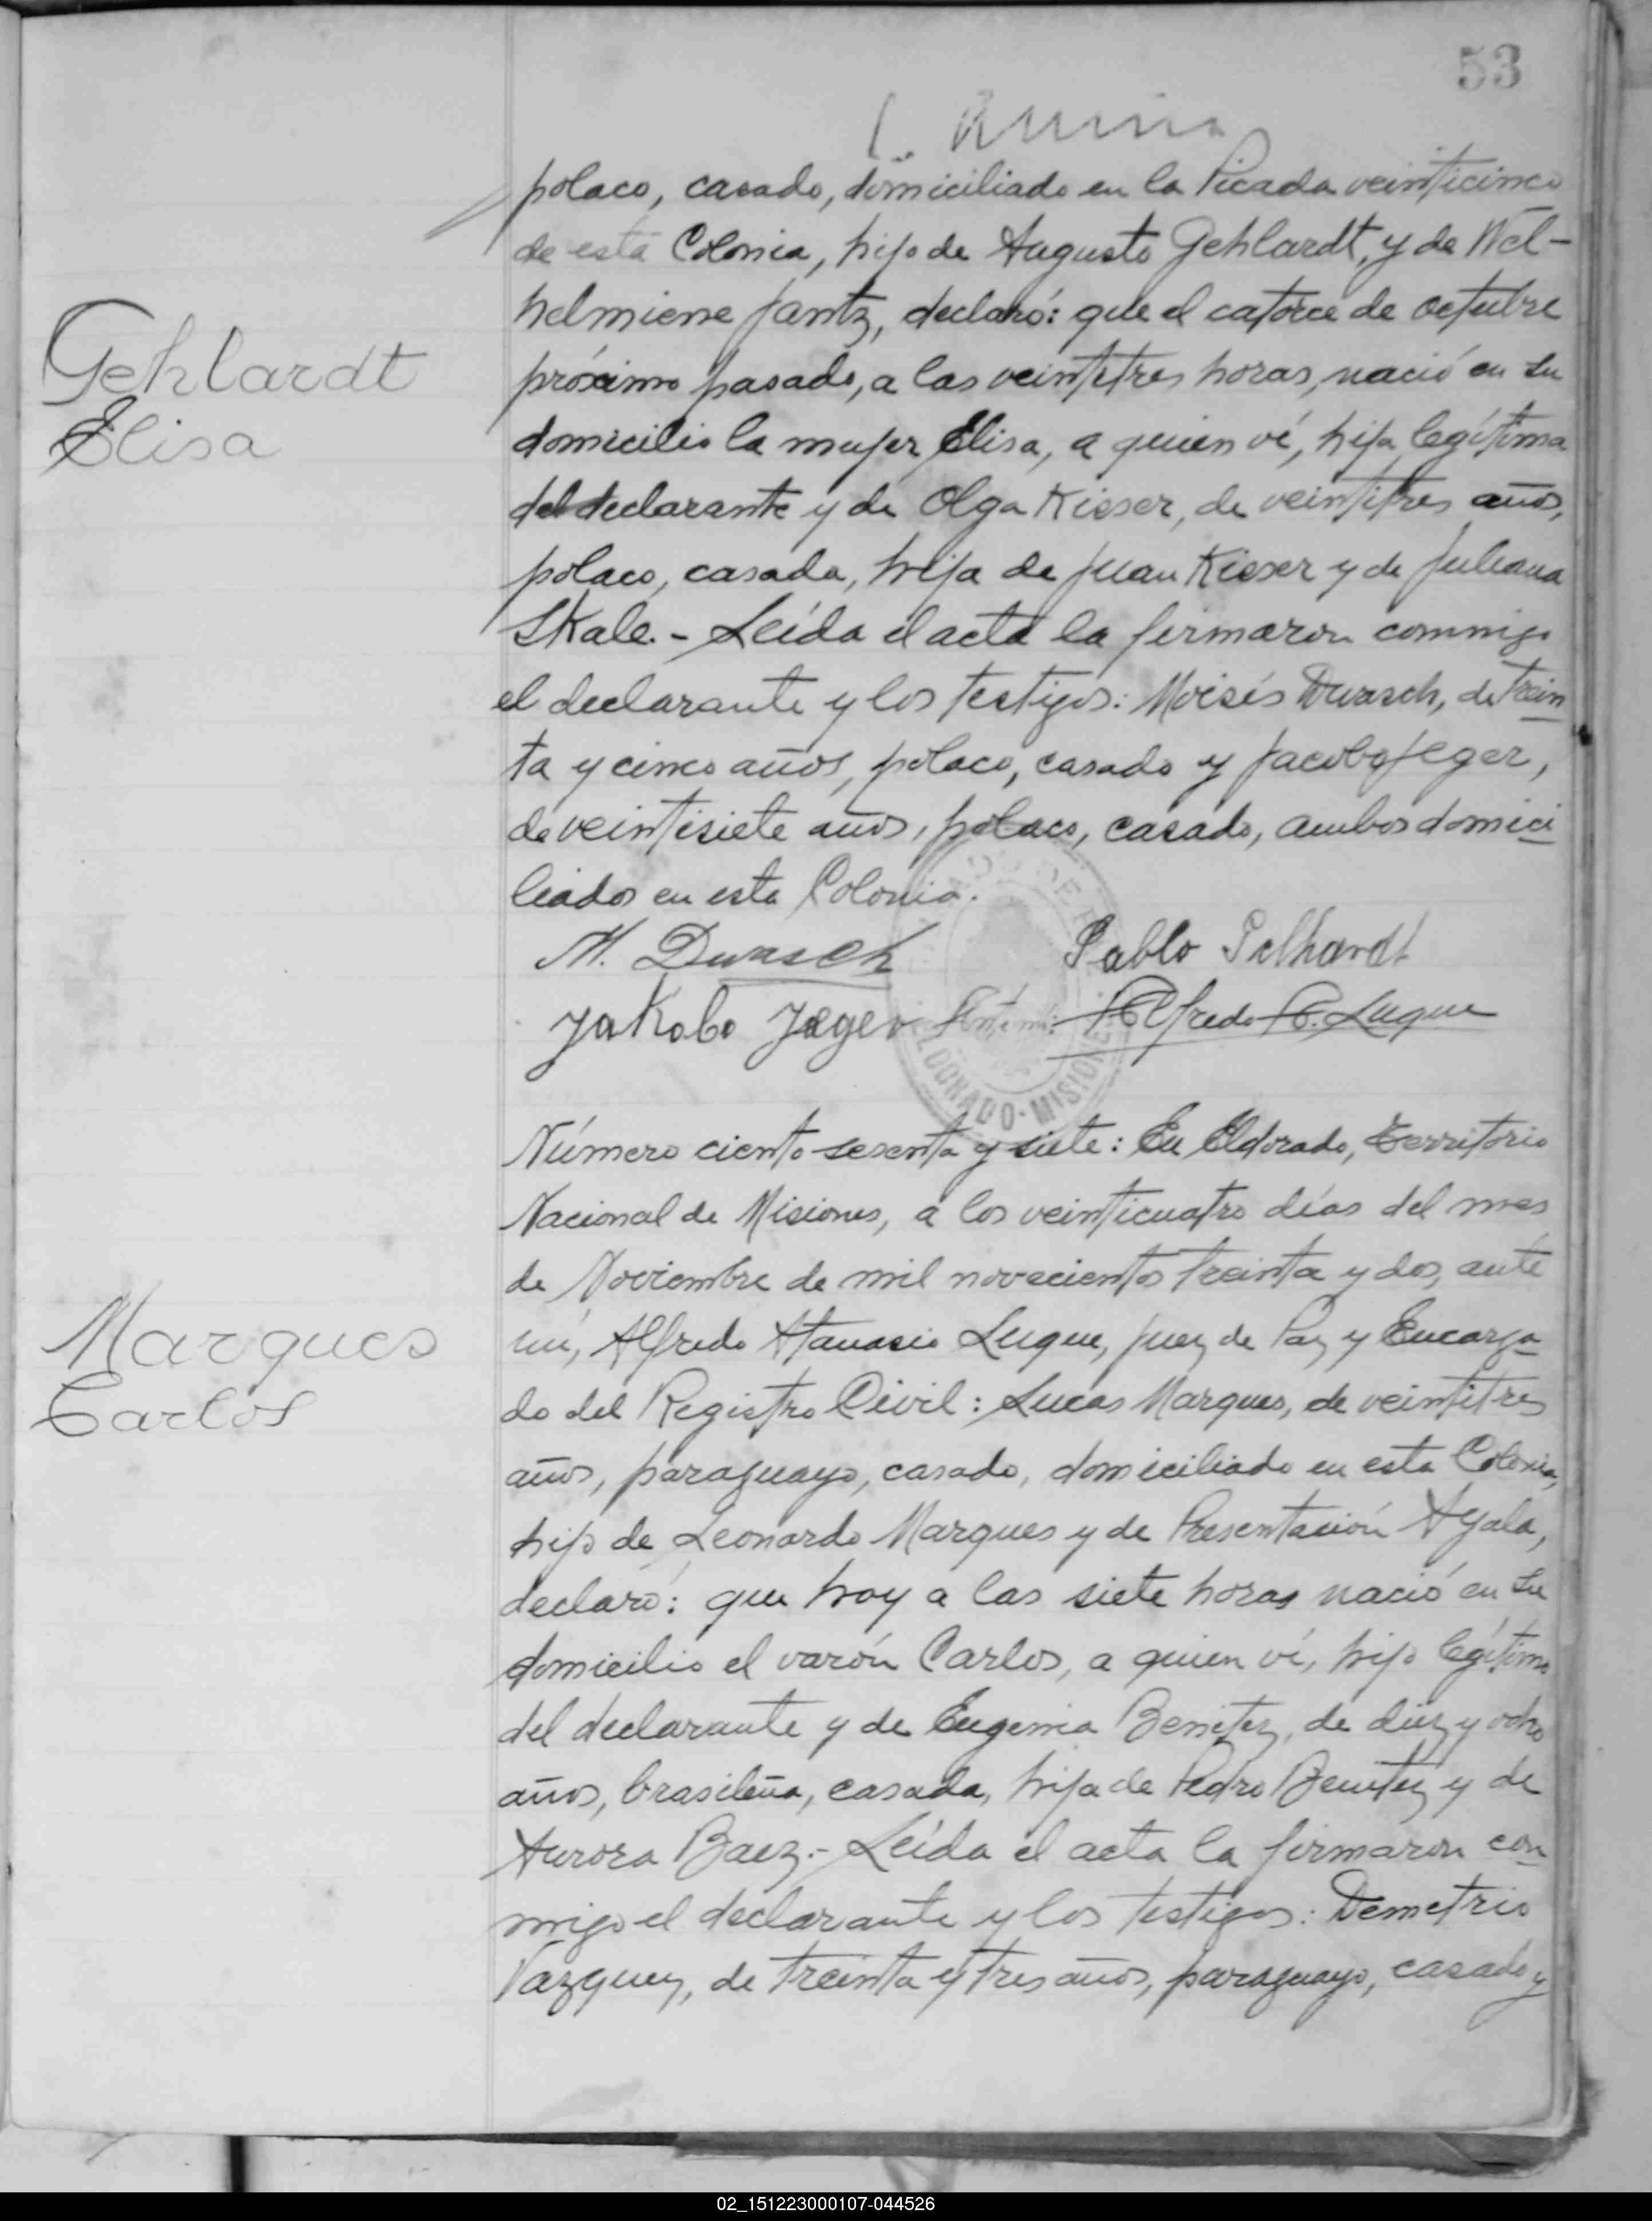 53
polaco, casado, domiciliado en la Picada veinticinco
de esta Colonia, hijo de Augusto Gehlardt, y de Wel-
helmiene Jantz, declaró: que el catorce de octubre
próximo pasado, a las veintitres horas, nació en su
Gehlardt
Elisa
domicilio la mujer Elisa, a quien ví, hija legítima
del declarante y de Olga Kieser, de veintitres años,
polaco, casada, hija de Juan Kieser y de Juliana
Skale.- Leída el acta la firmaron conmigo
el declarante y los testigos: Moisés Dwasch, de trein
ta y cinco años, polaco, casado y Jacobo Jeger,
de veintisiete años, polaco, casado, ambos domici
liados en esta Colonia.
M. Dwasch
Pablo Gelhardt
Jakobo Jæger
Alfredo A. Luque
ELDORADO-MISIONES
Número ciento sesenta y siete: En Eldorado, Territorio
Nacional de Misiones, a los veinticuatro días del mes
de Noviembre de mil novecientos treinta y dos, ante
Marques
Carlos
mí, Alfredo Atanasio Luque, Juez de Paz y Encarga
do del Registro Civil: Lucas Marques, de veintitres
años, paraguayo, casado, domiciliado en esta Colonia,
hijo de Leonardo Marques y de Presentación Ayala,
declaró: que hoy a las siete horas nació en su
domicilio el varón Carlos, a quien ví, hijo legítimo
del declarante y de Eugenia Benitez, de diez y ocho
años, brasileña, casada, hija de Pedro Benitez y de
Aurora Baez.- Leída el acta la firmaron con
migo el declarante y los testigos: Demetrio
Vazquez, de treinta y tres años, paraguayo, casado y
02_151223000107-044526